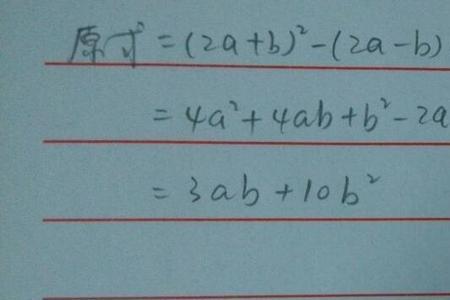 原式=(2a+b)²-(2a-b)
=4a²+4ab+b²-2a
=3ab+10b²